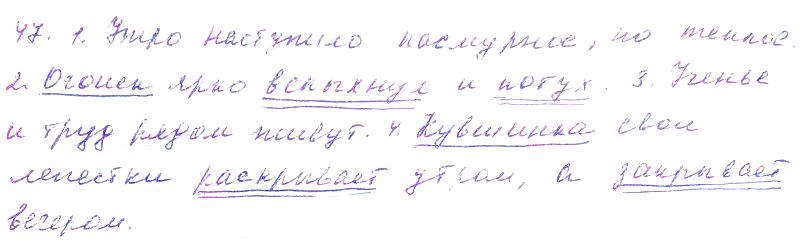 47. 1. Утро наступило пасмурное, но теплое.
2. Огонек ярко вспыхнул и потух. 3. Ученье
и труд рядом живут. 4. Кувшинка свои
лепестки раскрывает утром, а закрывает
вечером.